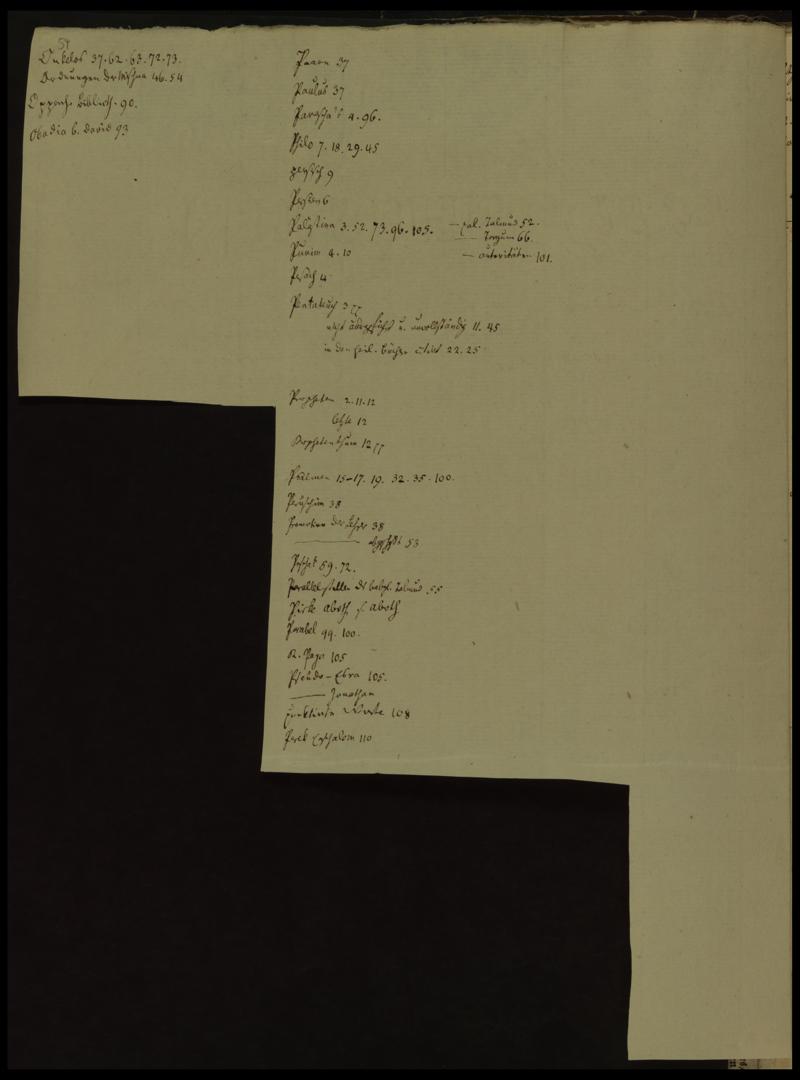 54
Onkelos 37. 62. 63. 72. 73.
Ordnungen der Mischna 46. 54
Oppenh. Biblioth. 90.
Obadia b. David 93
37
Paulus 37
Paraschas 4. 96.
Philo 7. 18. 29. 45
persisch 9
Persien 6
Palästina 3. 52. 73. 96. 105. — pal. Talmud 52.
— Targum 66.
— Autoritäten 101.
Purim 4. 10
Pesach 4
Pentateuch 3 ff
nicht u. unvollständig 11. 45
in den heil. Büchern 22. 25
Propheten 2. 11. 12
letzte 12
Prophetenthum 12 ff
Psalmen 15–17. 19. 32. 35. 100.
Peruschim 38
Promotion der Lehrer 38
— 53
Peschat 59. 72.
Parallelstellen des babyl. Talmud 55
Pirke aboth, s. aboth
Parabel 99. 100.
R. Papa 105
Pseudo-Esra 105.
— Jonathan
punktirte Worte 108
Perek haschalom 110